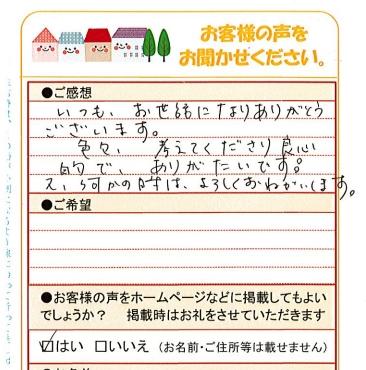 お客様の声を
お聞かせください。
●ご感想
いつも、お世話になりありがとう
ございます。
色々、考えてくださり良心
的で、ありがたいです。
又、何かの時は、よろしくおねがいします。
●ご希望
●お客様の声をホームページなどに掲載してもよい
でしょうか? 掲載時はお礼をさせていただきます
☑はい □いいえ (お名前・ご住所等は載せません)